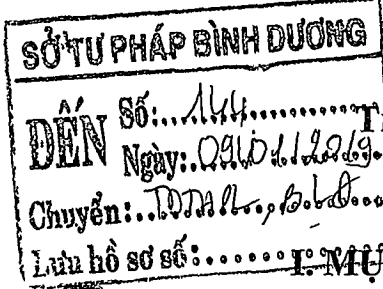 SỞ TƯ PHÁP BÌNH DƯƠNG
ĐẾN
Số: 144
Ngày: 09/01/2019
Chuyển:
Lưu hồ sơ số:
I. MỤ